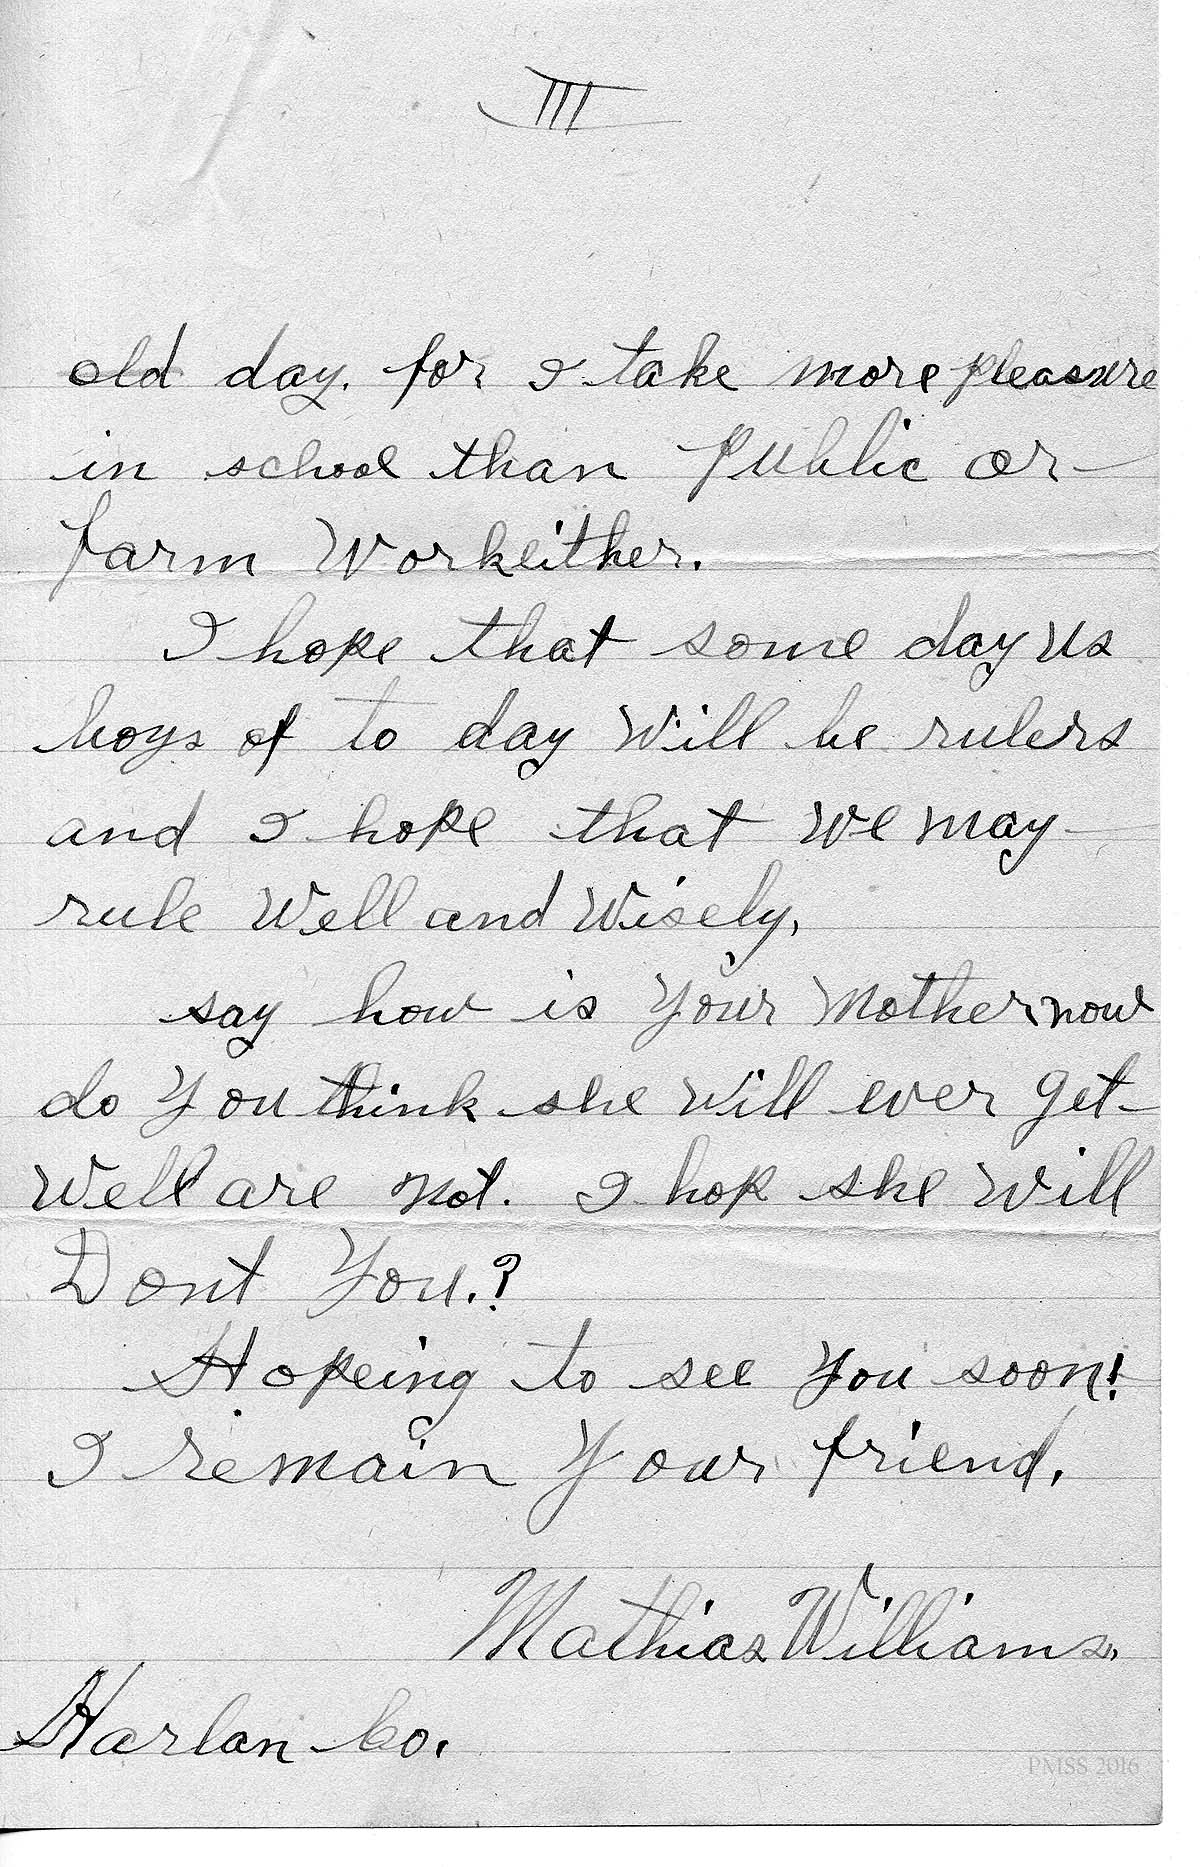 III
old day. for I take more pleasure
in school than Public or
farm Workeither.
I hope that some day us
boys of to day Will be rulers
and I hope that We may
rule Well and Wisely,
say how is Your Mother now
do You think she Will ever get
Well are not. I hop she Will
Dont You.?
Hopeing to see You soon!
I remain Your friend,
Mathias Williams,
Harlan Co.
PMSS 2016